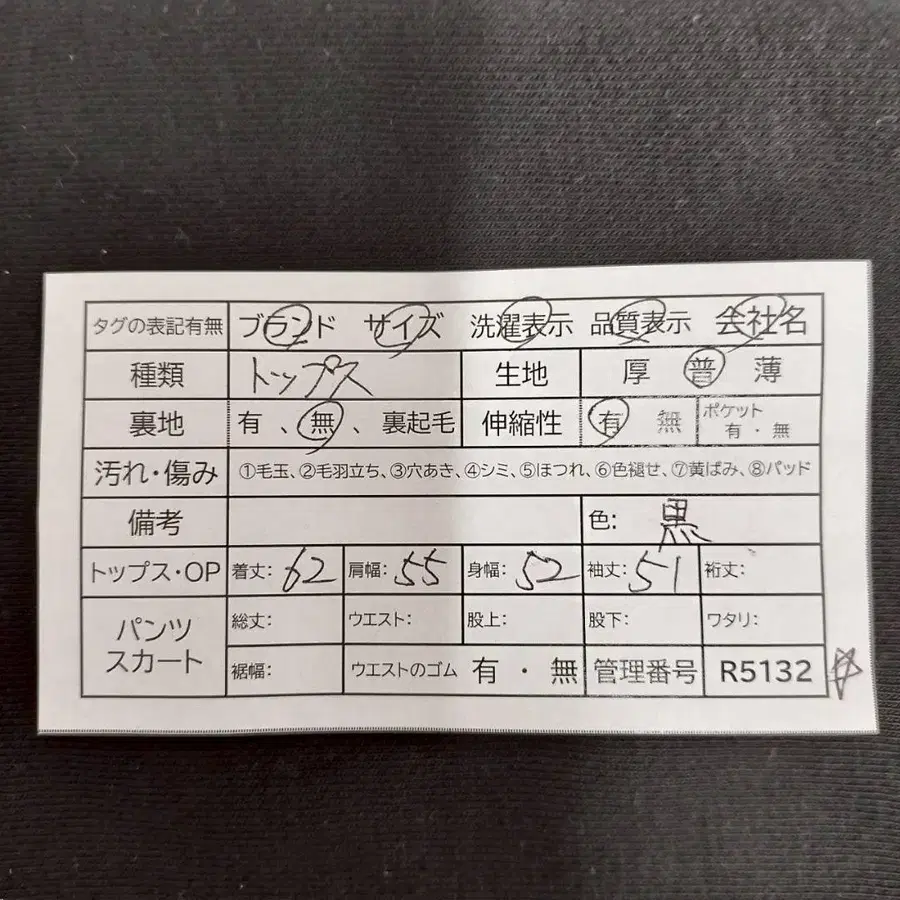 タグの表記有無 ブランド サイズ 洗濯表示 品質表示 会社名
種類 トップス 生地 厚 普 薄
裏地 有 、無、裏起毛 伸縮性 有 無 ポケット 有・無
汚れ・傷み ①毛玉、②毛羽立ち、③穴あき、④シミ、⑤ほつれ、⑥色褪せ、⑦黄ばみ、⑧パッド
備考 色: 黒
トップス・OP 着丈: 62 肩幅: 55 身幅: 52 袖丈: 51 裄丈:
パンツ スカート 総丈: ウエスト: 股上: 股下: ワタリ:
裾幅: ウエストのゴム 有 ・ 無 管理番号 R5132